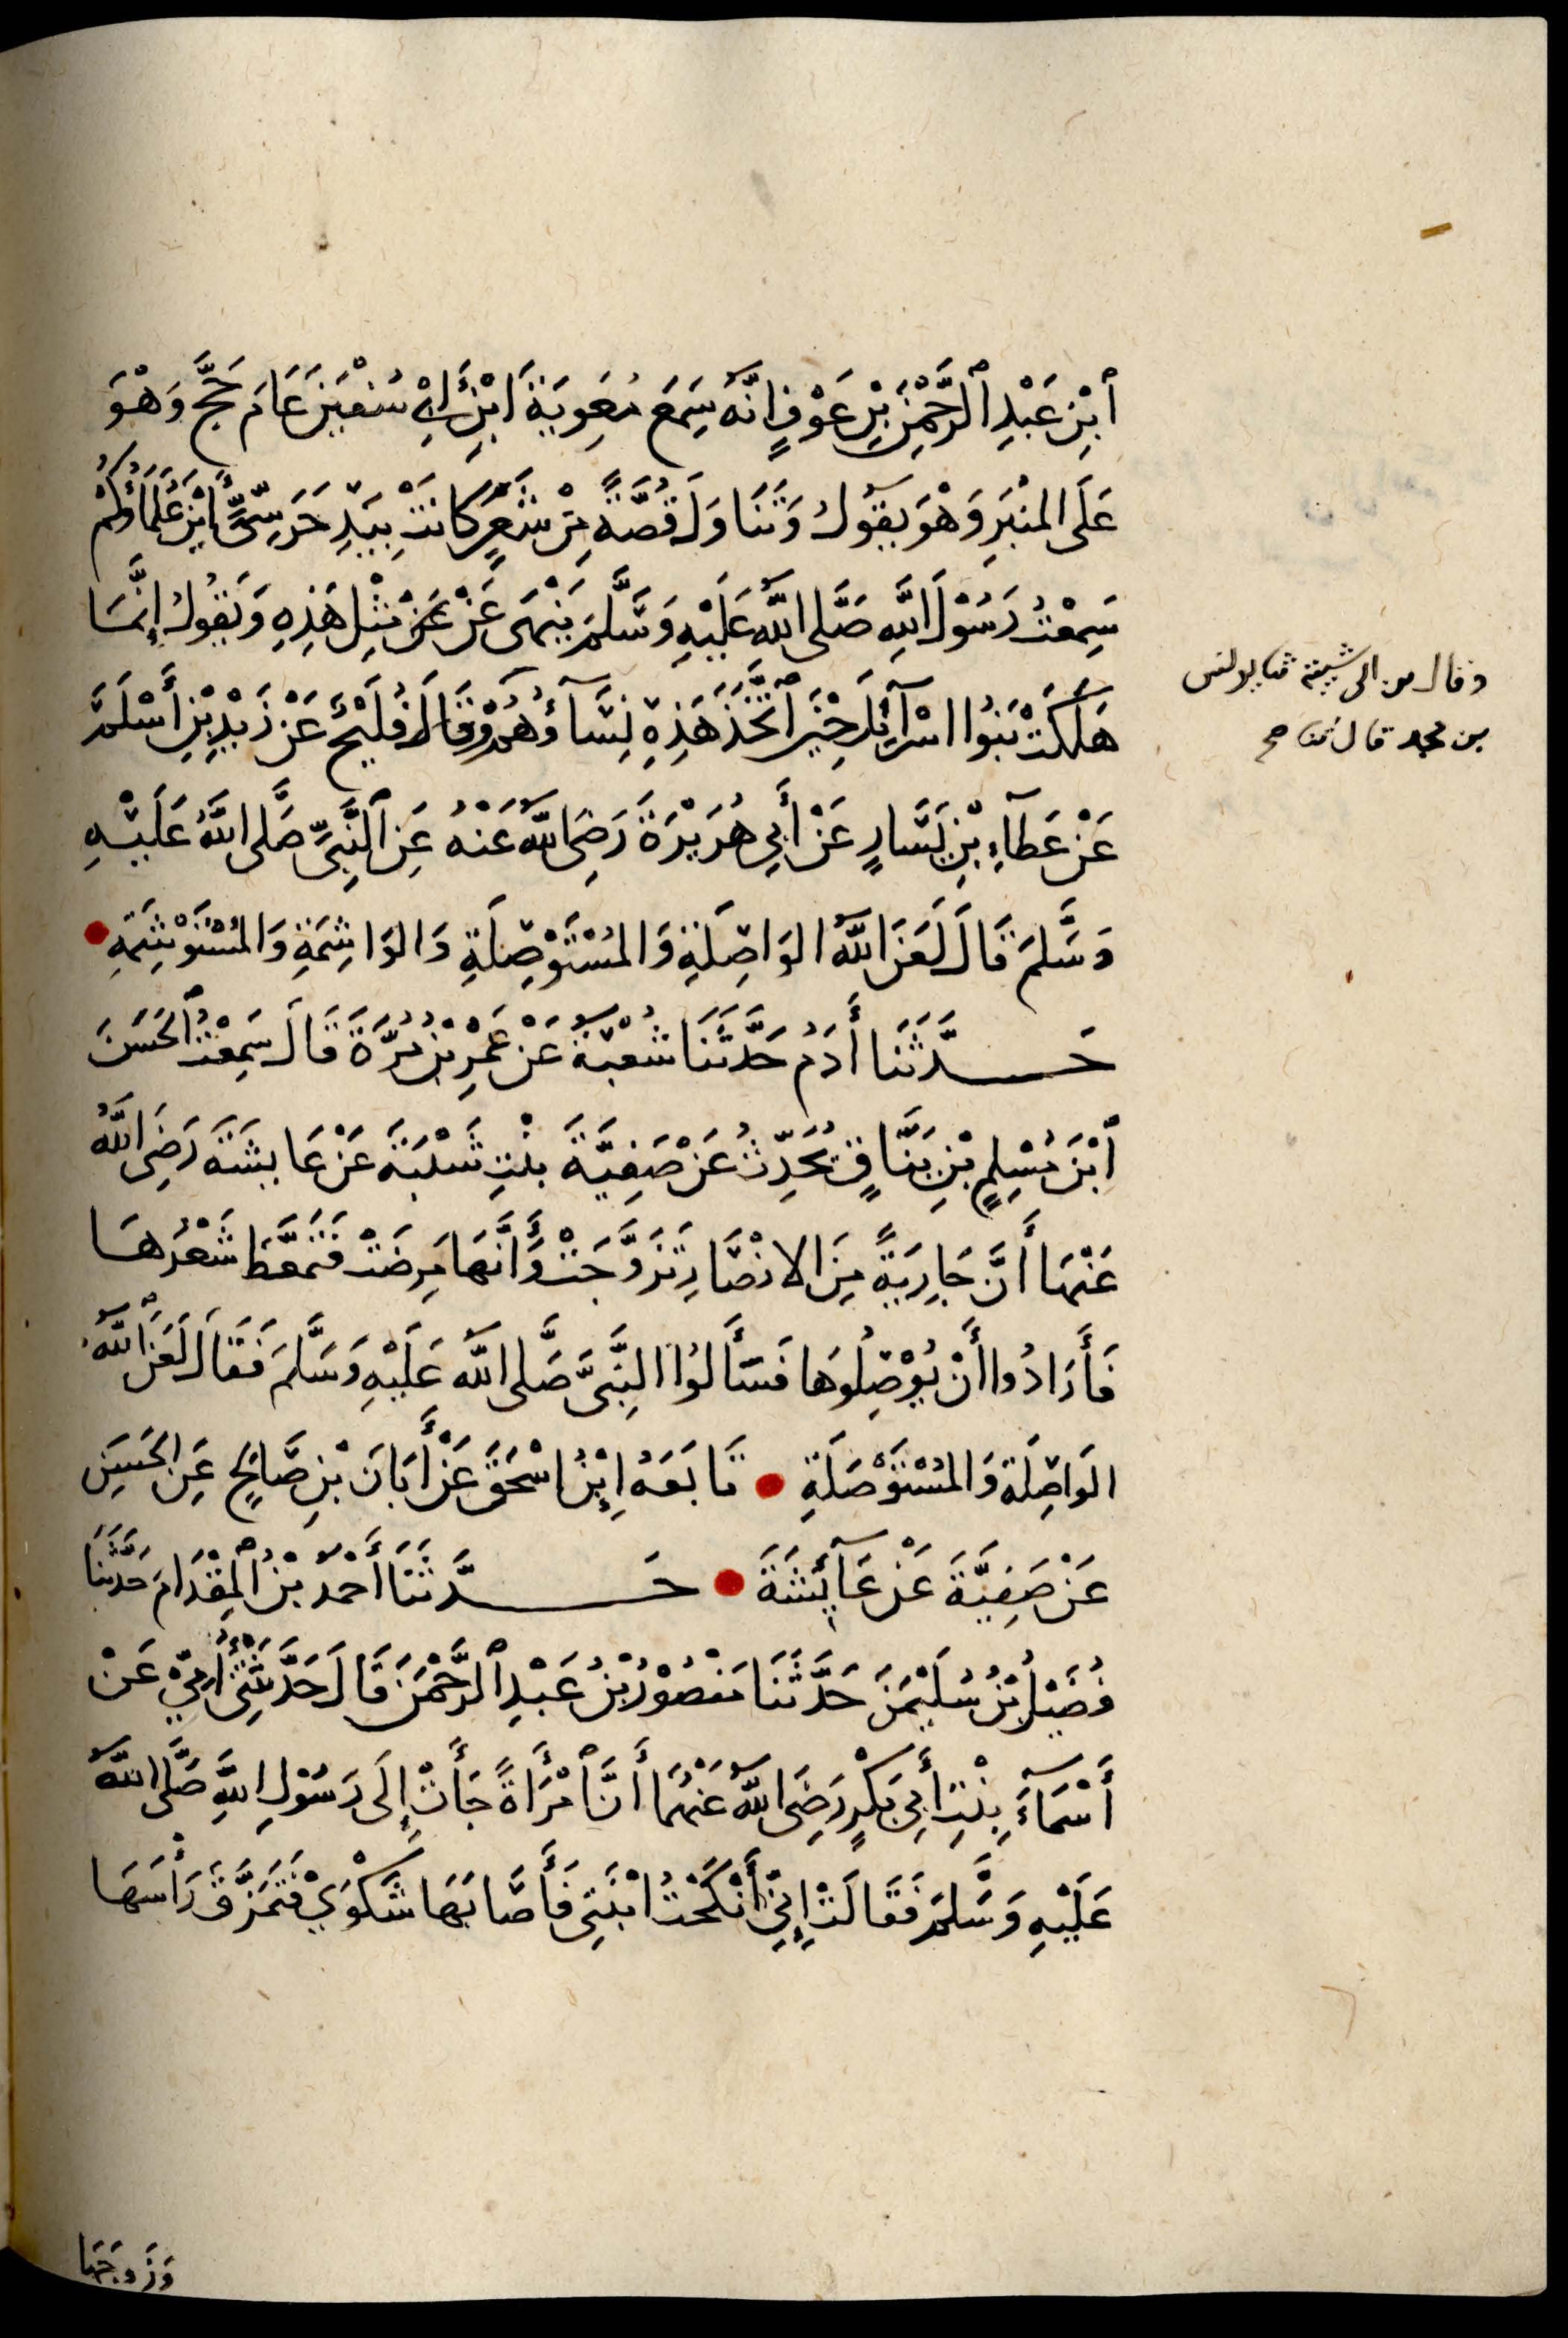 ٱبْنِ عَبْدِ ٱلرَّحْمٰنِ بْنِ عَوْفٍ انَّهُ سَمِعَ مُعَوِيَةَ ابْنَ أَبِي سُفْيَنَ عَامَ حَجَّ وَهْوَ
عَلَى المنْبَرِ وَهْوَ يَقُولُ وَتَنَاوَلَ قُصَّةً مِنْ شَعَرٍ كَانَتْ بِيَدِ حَرَسِيٍّ أَيْنَ عُلَمَاؤُكُمْ
سَمِعْتُ رَسُوْلَ اللَّهِ صَلَّى اللَّهُ عَلَيْهِ وَسَّلَمَ يَنْهَى عَنْ عَنْ مِثْلِ هَذِهِ وَيَقُولُ إِنَّمَا
هَلَكَتْ بَنُوا اسْرَآئِلَ حِيْنَ ٱتَّخَذَ هَذِهِ نِسَآؤُهُمْ وَقَالَ فُلَيْحٌ عَنْ زَيْدِ بْنِ أَسْلَمَ
عَنْ عَطَآءِ بْنِ يَسَارٍ عَنْ أَبِي هُرَيْرَةَ رَضِيَ اللَّهُ عَنْهُ عَنِ ٱلنَّبِيِّ صَّلَى اللَّهُ عَلَيْهِ
وَسَّلَمَ قَالَ لَعَنَ اللَّهُ الوَاصِلَةِ وَالمُسْتَوْصِلَةِ وَالوَاشِمَةِ وَالمُسْتَوْشِمَةِ
حَدَّثَنَا أَدَمُ حَدَّثَنَا شُعْبَةُ عَنْ عَمْرِ بْنِ مُرَّةَ قَالَ سَمِعْتُ ٱلحَسَنَ
ٱبْنَ مُسْلِمٍ بْنِ يَنَّاقٍ يُحَدِّثُ عَنْ صَفِيَّةَ بنْتِ شَيْبَةَ عَنْ عَايشَةَ رَضِيَ اللَّهُ
عَنْهَا أَنَّ جَارِيَةً مِنَ الانْصَارِ تَزَوَّجَتْ وَأَنَّهَا مَرِضَتْ فَتَمَعَّطَ شَعْرُهَا
فَأَرَادُوا أَنْ يُوْصِلُوهَا فَسَأَلُوا النَّبِيَّ صَّلَى اللَّهُ عَلَيْهِ وَسَّلَمَ فَقَالَ لَعَنَ ٱللَّهُ
الوَاصِلَةَ وَالمُسْتَوْصَلَةِ • تَابَعَهُ اِبْنُ اسْحَقَ عَنْ أَبَانَ بْنِ صَّالِحٍ عَنِ الحَسَنِ
عَنْ صَفِيَّةَ عَنْ عَآئِشَةَ • حَدَّثَنَا أَحْمَدُ بْنُ ٱلمِقْدَامِ حَدَّثَنَا
فُضَيْلُ بْنُ سُلَيْمَنَ حَدَّثَنَا مَنْصُوْرُ بْنُ عَبْدِ ٱلرَّحْمٰنِ قَالَ حَدَّثَتْنِي أُمِّيْ عَنْ
أَسْمَآءَ بِنْتِ أَبِي بَكْرٍ رَضِيَ اللَّهُ عَنْهُمَا أَنَّ ٱمْرَأَةً جَأَتْ إِلَى رَسُوْلِ اللَّهِ صَّلَى اللَّهُ
عَلَيْهِ وَسَّلَمَ فَقَالَتْ إِنِّيْ أَنْكَحْتُ ابْنَتِي فَأَصَّابَهَا شَكْوَيْ فَتَمَزَّقَ رَأْسَهَا
وَزَوجَهَا
وقال بن ابى شيبة ثنا يونس
بن محمد قال ثنا صح